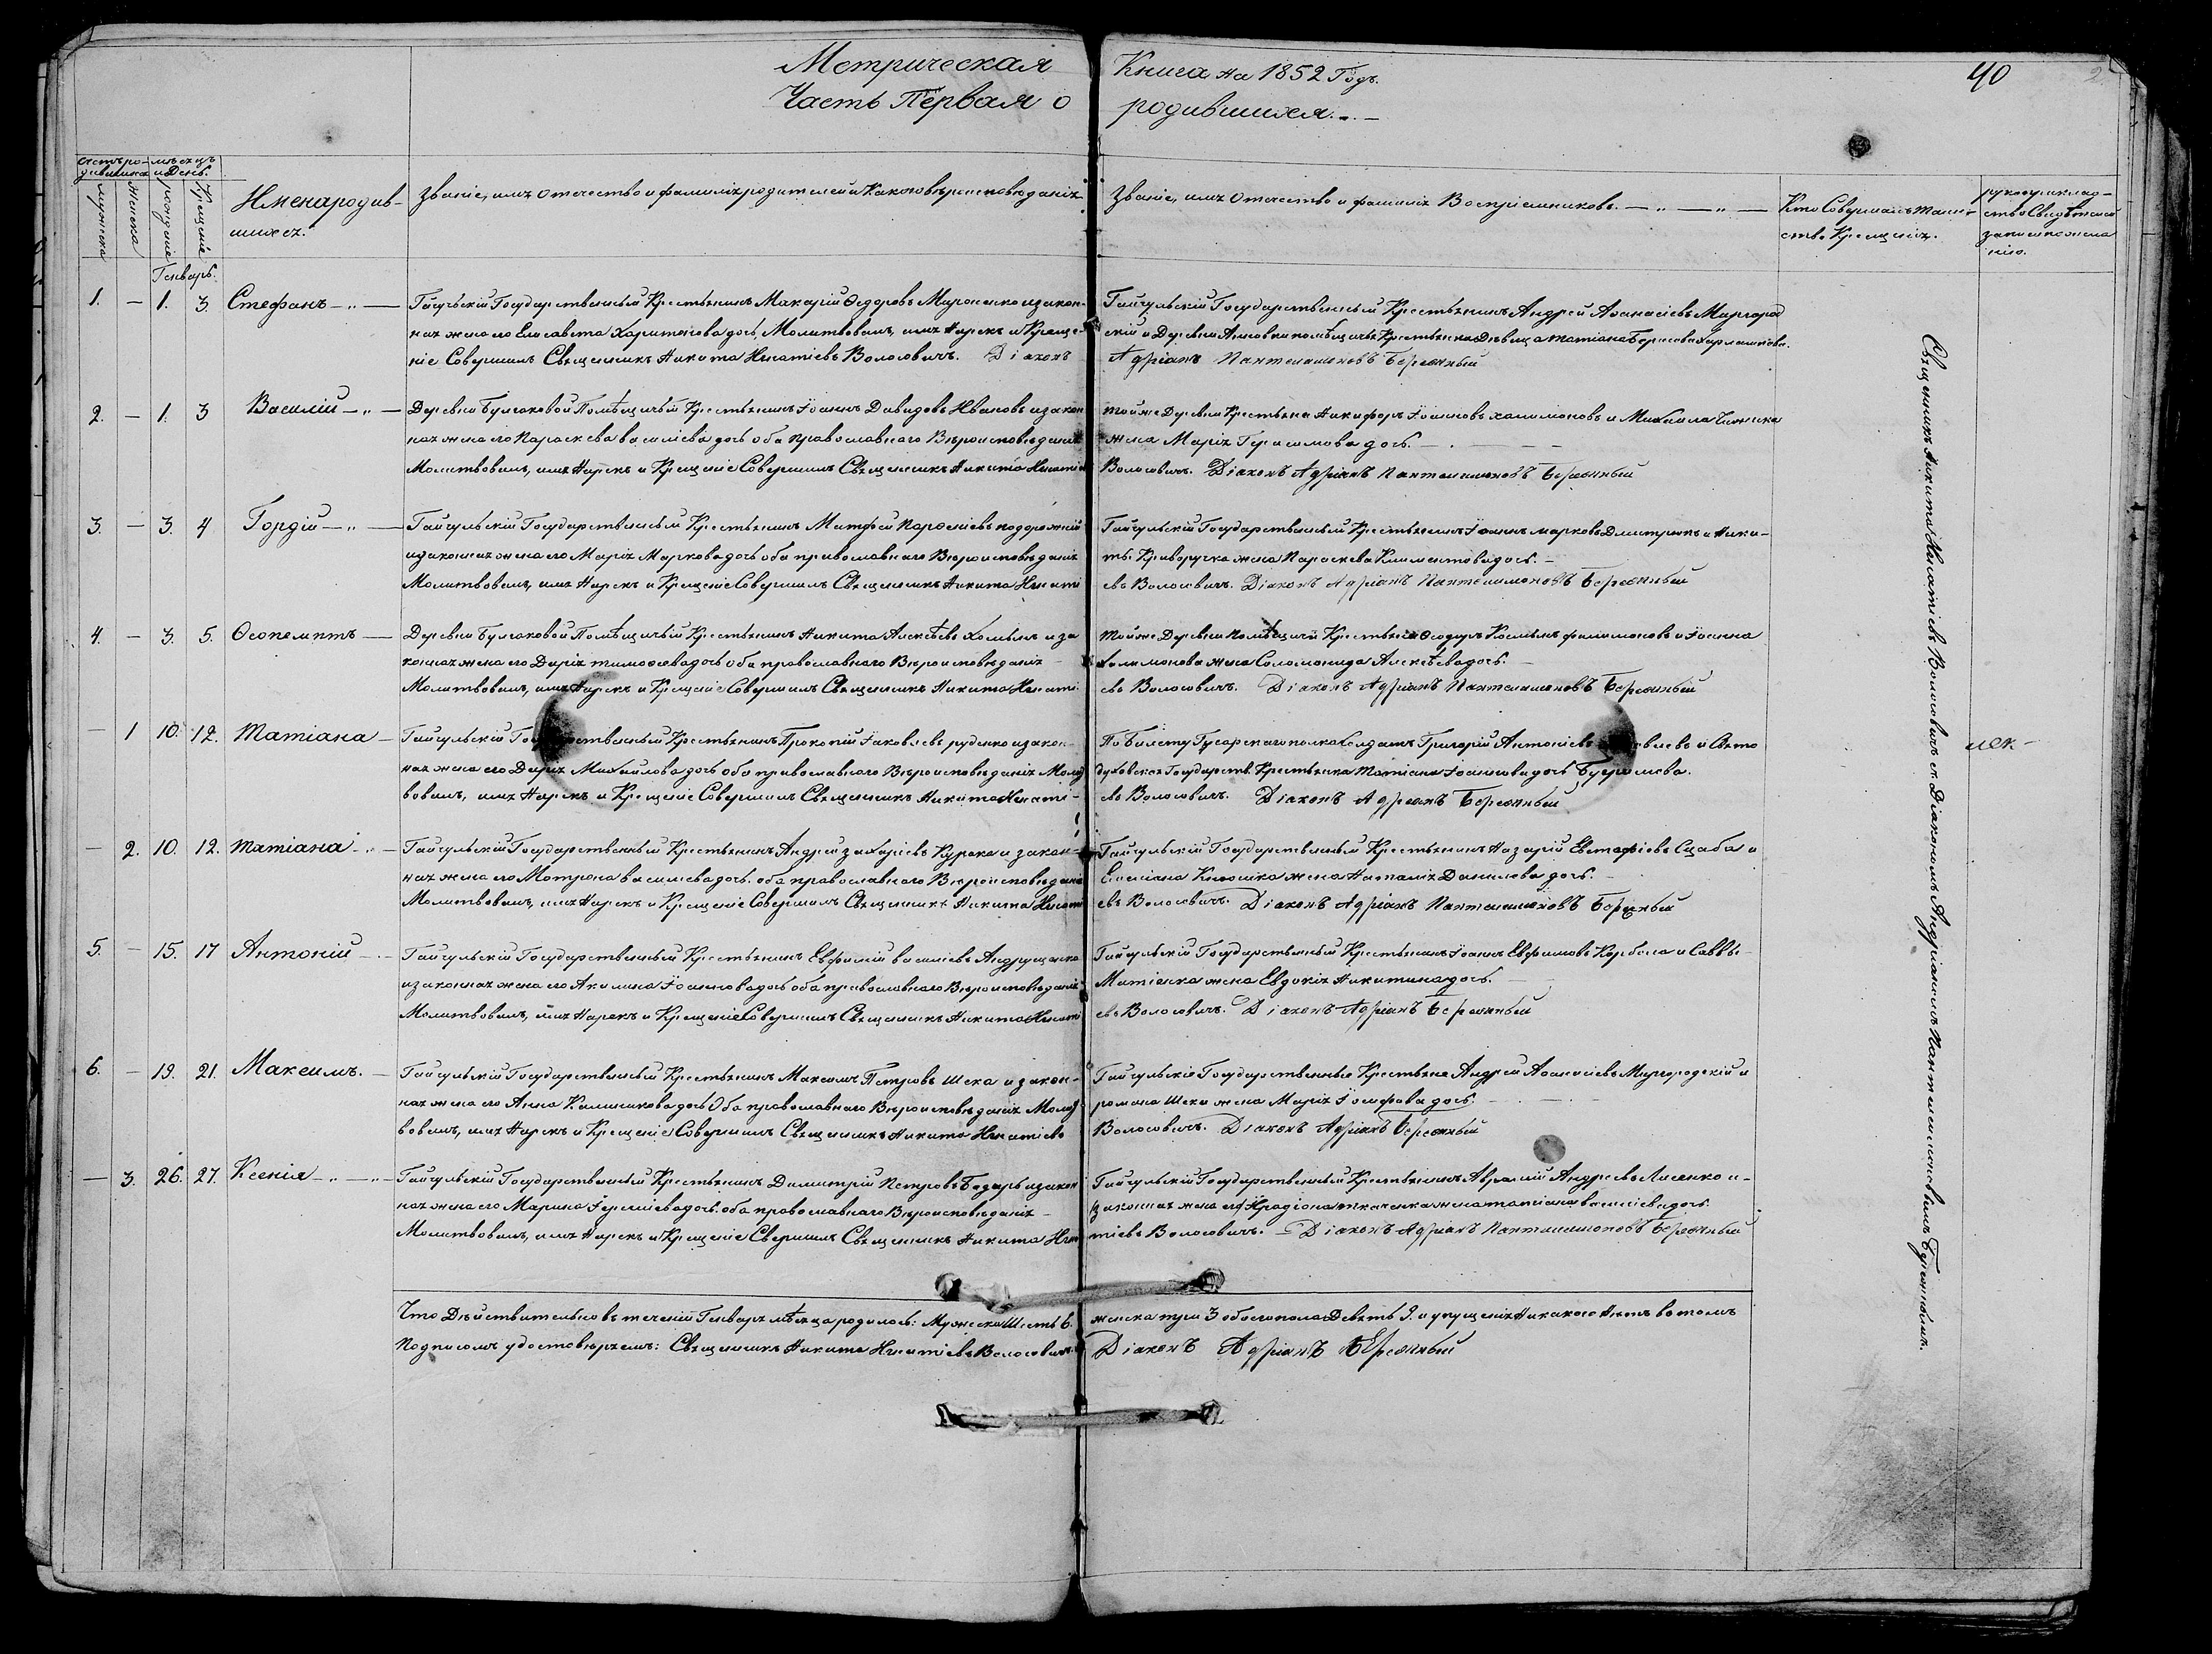 Метрическая Книга на 1852 Годъ. 40 2
Часть Первая о родившихся.
счетъ родившихся
мѣсяцъ и День.
мужеска
женска
рожденіе
Крещеніе
Имена родив-
шихся.
Званіе, имя отечество и фамилія родителей и какого вѣроисповѣданія
Званіе, имя Отечество и фамилія Воспріемниковъ.
Кто Совершалъ таин-
ство Крещенія.
рукоприклад-
ство Свидѣтелей
записи по жела
нію.
Генварь.
1. — 1. 3. Стефанъ — Гайчульскій Государственный Крестьянинъ Макарій Ѳедоровъ Мироненко и закон-
ная жена его Елисавета Харитонова дочь, Молитвовалъ, имя Нарекъ и Креще-
ніе Совершилъ Священникъ Никита Игнатіевъ Волосовичъ. Діаконъ
Гайчульскій Государственный Крестьянинъ Андрей Аѳанасіевъ Миргород
скій и Деревни помѣщичья Крестьянка Дѣвица Татіана Борисова
Адріанъ Пантелеимоновъ Бережный
2. — 1. 3 Василій — Деревни Булгаковой Помѣщичій Крестьянинъ Іоаннъ Давидовъ Ивановъ и закон
ная жена его Параскева Василіева дочь оба православнаго Вѣроисповѣданія
Молитвовалъ, имя Нарекъ и Крещеніе Совершилъ Священникъ Никита Игнатіе
той же Деревни Крестьяне Никифоръ Іоанновъ и Михаила
жена Марія Герасимова дочь.
Волосовичъ. Діаконъ Адріанъ Пантелеимоновъ Бережный
3. — 3. 4 Гордій — Гайчульскій Государственный Крестьянинъ Матфей подорожній
и законная жена его Марія Маркова дочь оба православнаго Вѣроисповѣданія
Молитвовалъ, имя Нарекъ и Крещеніе Совершилъ Священникъ Никита Игнаті
Гайчульскій Государственный Крестьянинъ Іоаннъ Марковъ и Ники-
ты Криворучка жена Параскева Климентова дочь.
евъ Волосовичъ. Діаконъ Адріанъ Пантелеимоновъ Бережный
4. — 3. 5. Ѳеопемптъ — Деревни Булгаковой Помѣщичій Крестьянинъ Никита Алексѣевъ и за
конная жена его Дарія Тимоѳеева дочь оба православнаго Вѣроисповѣданія
Молитвовалъ, имя Нарекъ и Крещеніе Совершилъ Священникъ Никита Игнаті
той же Деревни помѣщичьи Крестьяне Ѳеодоръ Косминъ и Іоанна
жена Соломонида Алексѣева дочь.
евъ Волосовичъ. Діаконъ Адріанъ Пантелеимоновъ Бережный
— 1 10. 12. Татіана — Гайчульскій Государственный Крестьянинъ Прокопій Іаковлевъ руденко и закон-
ная жена его Дарія Михайлова дочь оба православнаго Вѣроисповѣданія Молит
вовалъ, имя Нарекъ и Крещеніе Совершилъ Священникъ Никита Игнаті-
По билету Гусарскаго полка Солдатъ Григорій Антоніевъ и Свято
духовская Государств. Крестьянка Татіана Іоаннова дочь
евъ Волосовичъ. Діаконъ Адріанъ Бережный
— 2. 10. 12. Татіана — Гайчульскій Государственный Крестьянинъ Андрей Захаріевъ и закон-
ная жена его Матрона Василіева дочь. оба православнаго Вѣроисповѣдані
Молитвовалъ, имя Нарекъ и Крещеніе Совершилъ Священникъ Никита Игнаті
Гайчульскій Государственный Крестьянинъ Назарій Евстафіевъ и
жена Наталія Данилова дочь.
евъ Волосовичъ. Діаконъ Адріанъ Пантелеимоновъ Бережный
5. — 15. 17 Антоній — Гайчульскій Государственный Крестьянинъ Евфимій Василіевъ Андрущенко
и законная жена его Акилина Іоаннова дочь оба православнаго Вѣроисповѣданія
Молитвовалъ, имя Нарекъ и Крещеніе Совершилъ Священникъ Никита Игнаті
Гайчульскій Государственный Крестьянинъ Іоаннъ Евфимовъ и Саввы
жена Евдокія Никитина дочь.
евъ Волосовичъ. Діаконъ Адріанъ Бережный
6. — 19. 21. Максимъ. — Гайчульскій Государственный Крестьянинъ Максимъ Петровъ Шека и закон-
ная жена его Анна Калиникова дочь Оба православнаго Вѣроисповѣданія Молит
вовалъ, имя Нарекъ и Крещеніе Совершилъ Священникъ Никита Игнатіевъ
Гайчульскіе Государственные Крестьяне Андрей Аѳанасіевъ Миргородскій и
романа Шеки жена Марія Іосифова дочь.
Волосовичъ. Діаконъ Адріанъ Бережный
— 3. 26. 27. Ксенія — Гайчульскій Государственный Крестьянинъ Димитрій Петровъ и закон
ная жена его Марина дочь. оба православнаго Вѣроисповѣданія
Молитвовалъ, имя Нарекъ и Крещеніе Свершилъ Священникъ Никита Игна
Гайчульскій Государственный Крестьянинъ Аврамій Андреевъ Лисенко и
жена Татіана Василіева дочь.
тіевъ Волосовичъ. — Діаконъ Адріанъ Пантелеимоновъ Бережный
Что Дѣйствительно въ теченіи Генваря мѣсяца родилось: Мужеска Шесть 6. женска три 3 обоего пола Девять 9. и упущенія никакого нѣтъ въ томъ
Подписомъ удостовѣряемъ: Священникъ Никита Игнатіевъ Волосовичъ Діаконъ Адріанъ Бережный
Священникъ Никита Игнатіевъ Волосовичъ съ Діакономъ Адріаномъ Пантелеимоновымъ Бережнымъ.